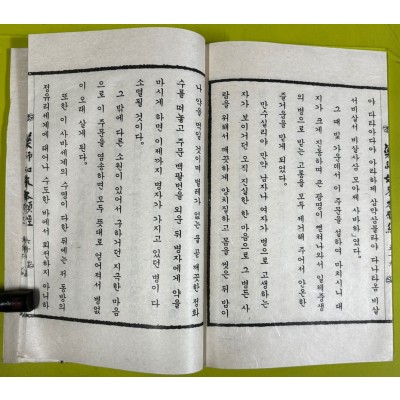 야 다타아다야 아라하제 삼약삼불타야 다냐타옴 비살
서비살서 비살사삼 모아제 사바하』였다.
그때 빛 가운데서 이 주문을 설하여 마치시니 대
지가 크게 진동하며 큰 광명이 펼쳐나와서 일체중생
의 병으로 받는 고통을 모두 제거해 주어서 안온한
즐거움을 받게 되었다.
만수실리야 만약 남자나 여자가 병으로 고생하는
자가 보이거던 오직 진실한 한 마음으로 그 병든 사
람을 위해서 깨끗하게 양치질하고 몸을 씻은 뒤 밥이
나 약을 먹일 것이며 벌레가 없는 물 곧 깨끗한 정화
수를 떠놓고 주문 백팔번을 외운 뒤 병자에게 약을
마시게 하면 이제까지 병자가 가지고 있던 병이 다
소멸될 것이다.
그 밖에 다른 소원이 있어서 구하려던 지극한 마음
으로 이 주문을 염송하면 모두 뜻대로 얻어져서 병없
이 오래 살게 된다.
또한 이 사바세계의 수명이 다한 뒤에는 저 동방의
정유리세계에 태어나 수도한 바에서 퇴전하지 아니하